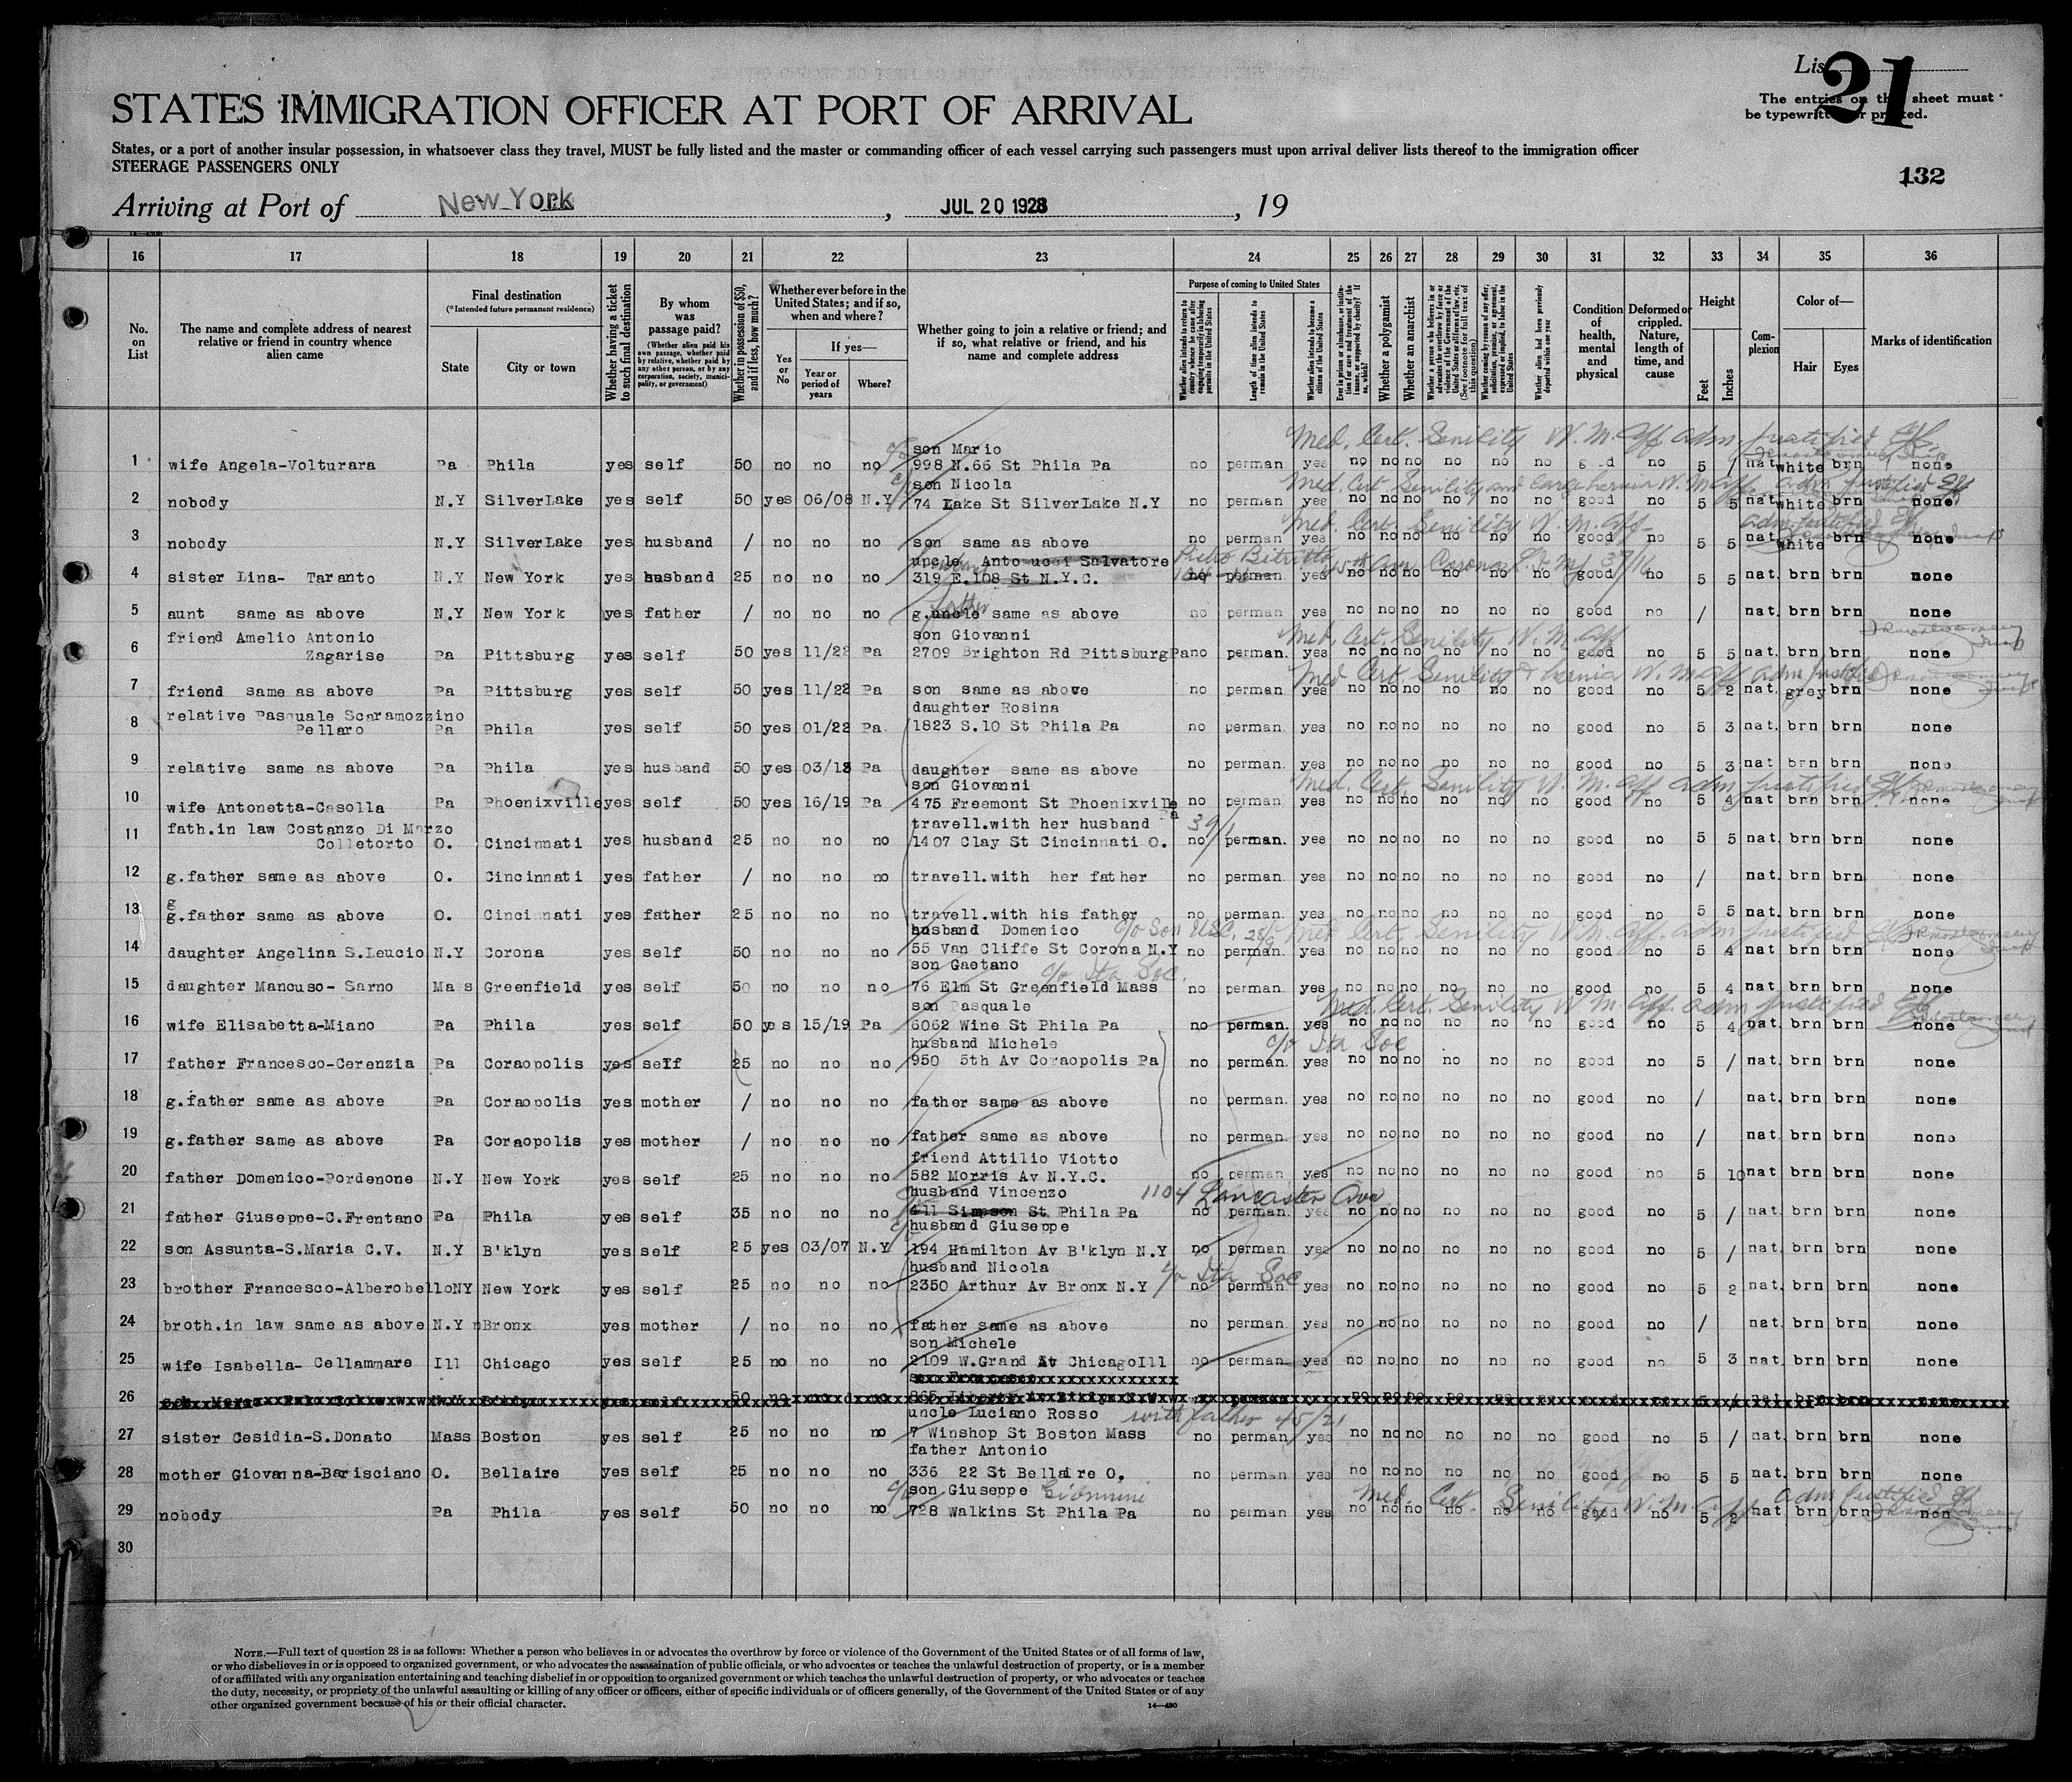 List 21
The entries on this sheet must
be typewritten or printed.
STATES IMMIGRATION OFFICER AT PORT OF ARRIVAL
States, or a port of another insular possession, in whatsoever class they travel, MUST be fully listed and the master or commanding officer of each vessel carrying such passengers must upon arrival deliver lists thereof to the immigration officer
STEERAGE PASSENGERS ONLY
132
Arriving at Port of New York, JUL 20 1928, 19
16 17 18 19 20 21 22 23 24 25 26 27 28 29 30 31 32 33 34 35 36
No. on List
The name and complete address of nearest relative or friend in country whence alien came
Final destination (*Intended future permanent residence)
State
City or town
Whether having a ticket to such final destination
By whom was passage paid?
(Whether alien paid his own passage, whether paid by relative, whether paid by any other person, or by any corporation, society, municipality, or government)
Whether in possession of $50, and if less, how much?
Whether ever before in the United States; and if so, when and where?
Yes or No
If yes—
Year or period of years
Where?
Whether going to join a relative or friend; and if so, what relative or friend, and his name and complete address
Purpose of coming to United States
Whether alien intends to return to country whence he came after engaging temporarily in laboring pursuits in the United States
Length of time alien intends to remain in the United States
Whether alien intends to become a citizen of the United States
Whether a polygamist
Whether an anarchist
Condition of health, mental and physical
Deformed or crippled. Nature, length of time, and cause
Height
Feet
Inches
Complexion
Color of—
Hair
Eyes
Marks of identification
Med. Cert. Senility W. M. Aff. adm. justified
son Mario
1 wife Angela-Volturara Pa Phila yes self 50 no no no 998 N.66 St Phila Pa no perman yes no no no no no no good no 5 / nat. white brn none
son Nicola
Med. Cert. Senility and large hernia W. M. aff. adm justified
2 nobody N.Y SilverLake yes self 50 yes 06/08 N.Y 74 Lake St SilverLake N.Y no perman yes no no no no no no good no 5 5 nat. white brn none
Med. Cert. Senility W. M. aff. adm. justified
3 nobody N.Y SilverLake yes husband / no no no son same as above no perman yes no no no no no no good no 5 5 nat. white brn none
uncle Antonucci Salvatore Pietro
4 sister Lina- Taranto N.Y New York yes husband 25 no no no 319 E.108 St N.Y.C. no perman yes no no no no no no good no 5 5 nat. brn brn none
father
5 aunt same as above N.Y New York yes father / no no no g.uncle same as above no perman yes no no no no no no good no / nat. brn brn none
friend Amelio Antonio son Giovanni Med. Cert. Senility W. M. aff
6 Zagarise Pa Pittsburg yes self 50 yes 11/22 Pa 2709 Brighton Rd PittsburgPa no perman. yes no no no no no no good no 5 5 nat. brn brn none
Med Cert. Senility & hernia W. M. aff adm justified
7 friend same as above Pa Pittsburg yes self 50 yes 11/22 Pa son same as above no perman yes no no no no no no good no 5 2 nat. grey brn none
relative Pasquale Scaramozzino daughter Rosina
8 Pellaro Pa Phila yes self 50 yes 01/22 Pa. 1823 S.10 St Phila Pa no perman. yes no no no no no no good no 5 3 nat. brn brn none
9 relative same as above Pa Phila yes husband 50 yes 03/13 Pa daughter same as above no perman. yes no no no no no no good no 5 3 nat brn brn none
son Giovanni Med. Cert. Senility W. M. aff adm justified
10 wife Antonetta-Casolla Pa Phoenixville yes self 50 yes 16/19 Pa 475 Freemont St Phoenixville Pa no perman yes no no no no no no good no 5 4 nat brn brn none
fath.in law Costanzo Di Marzo travell.with her husband
11 Colletorto O. Cincinnati yes husband 25 no no no 1407 Clay St Cincinnati O. no perman. yes no no no no no no good no 5 5 nat. brn brn none
12 g.father same as above O. Cincinnati yes father / no no no travell.with her father no perman. yes no no no no no no good no / nat. brn brn none
13 g.father same as above O. Cincinnati yes father 25 no no no travell.with his father no perman. yes no no no no no no good no 5 5 nat. brn brn none
husband Domenico c/o Son Med Cert. Senility W. M. aff. adm justified
14 daughter Angelina S.Leucio N.Y Corona yes self 50 no no no 55 Van Cliffe St Corona N.Y no perman. yes no no no no no no good no 5 4 nat. brn brn none
son Gaetano c/o Ita Soc.
15 daughter Mancuso- Sarno Mass Greenfield yes self 50 no no no 76 Elm St Greenfield Mass no perman. yes no no no no no no good no 5 4 nat. brn brn none
son Pasquale Med. Cert. Senility W M. aff. adm justified
16 wife Elisabetta-Miano Pa Phila yes self 50 yes 15/19 Pa 6062 Wine St Phila Pa no perman. yes no no no no no no good no 5 4 nat. brn brn none
husband Michele c/o Ita Soc
17 father Francesco-Cerenzia Pa Coraopolis yes self 25 no no no 950 5th Av Coraopolis Pa no perman. yes no no no no no no good no 5 / nat. brn brn none
18 g.father same as above Pa Coraopolis yes mother / no no no father same as above no perman. yes no no no no no no good no / nat. brn brn none
19 g.father same as above Pa Coraopolis yes mother / no no no father same as above no perman. yes no no no no no no good no / nat. brn brn none
friend Attilio Viotto
20 father Domenico-Pordenone N.Y New York yes self 25 no no no 582 Morris Av N.Y.C. no perman yes no no no no no no good no 5 10 nat brn brn none
husband Vincenzo 1104 Lancaster Ave
21 father Giuseppe-C.Frentano Pa Phila yes self 35 no no no 411 Simpson St Phila Pa no perman. yes no no no no no no good no 5 / nat. brn brn none
husband Giuseppe
22 son Assunta-S.Maria C.V. N.Y B'klyn yes self 25 yes 03/07 N.Y 194 Hamilton Av B'klyn N.Y no perman yes no no no no no no good no 5 / nat. brn brn none
husband Nicola c/o Ita Soc
23 brother Francesco-Alberobello NY New York yes self 25 no no no 2350 Arthur Av Bronx N.Y no perman yes no no no no no no good no 5 2 nat. brn brn none
24 broth.in law same as above N.Y Bronx yes mother / no no no father same as above no perman yes no no no no no no good no / nat. brn brn none
son Michele
25 wife Isabella- Cellammare Ill Chicago yes self 25 no no no 2109 W.Grand Av Chicago Ill no perman yes no no no no no no good no 5 3 nat. brn brn none
son Francesco
26
uncle Luciano Rosso with father 45/21
27 sister Cesidia-S.Donato Mass Boston yes self 25 no no no 7 Winshop St Boston Mass no perman yes no no no no no no good no 5 / nat. brn brn none
father Antonio
28 mother Giovanna-Barisciano O. Bellaire yes self 25 no no no 336 22 St Bellaire O. no perman yes no no no no no no good no 5 5 nat. brn brn none
son Giuseppe Med. Cert. Senility W. M. aff adm justified
29 nobody Pa Phila yes self 50 no no no 728 Walkins St Phila Pa no perman yes no no no no no no good no 5 2 nat brn brn non
30
NOTE.—Full text of question 28 is as follows: Whether a person who believes in or advocates the overthrow by force or violence of the Government of the United States or of all forms of law,
or who disbelieves in or is opposed to organized government, or who advocates the assassination of public officials, or who advocates or teaches the unlawful destruction of property, or is a member
of or affiliated with any organization entertaining and teaching disbelief in or opposition to organized government or which teaches the unlawful destruction of property, or who advocates or teaches
the duty, necessity, or propriety of the unlawful assaulting or killing of any officer or officers, either of specific individuals or of officers generally, of the Government of the United States or of any
other organized government because of his or their official character.
14—430